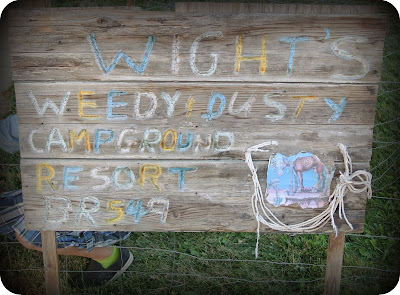 WIGHT'S
WEEDY & DUSTY
CAMPGROUND
RESORT
DR549